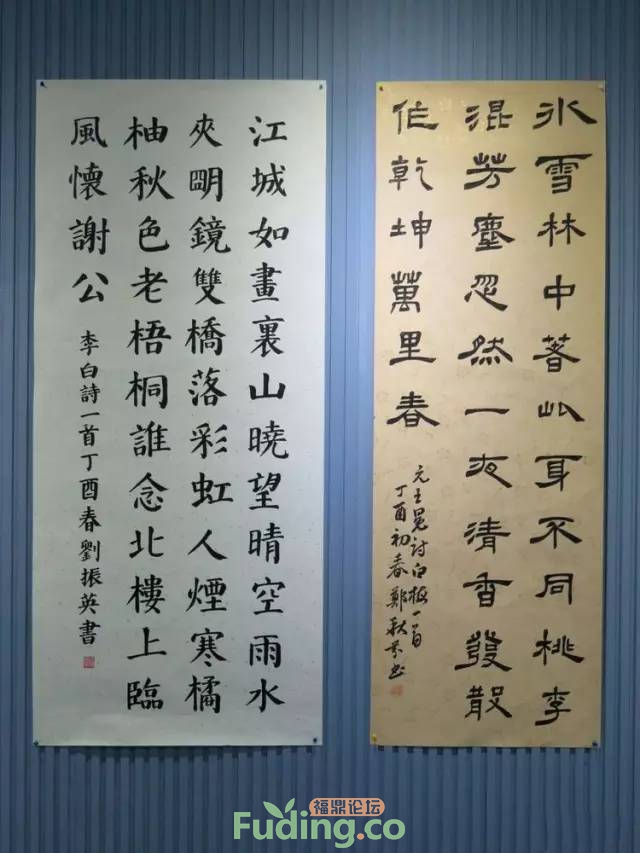 冰雪林中著此身不同桃李
混芳塵忽然一夜清香發散
作乾坤萬里春
元王冕詩白梅一首
丁酉初春鄭秋書
江城如畫裏山曉望晴空雨水
夾明鏡雙橋落彩虹人煙寒橘
柚秋色老梧桐誰念北樓上臨
風懷謝公
李白詩一首丁酉春劉振英書
福鼎论坛
Fuding.co